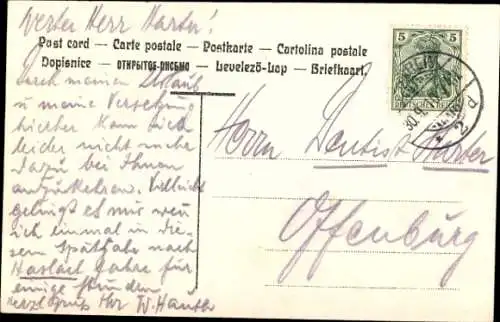 Werter Herr Harter!
Post card — Carte postale — Postkarte — Cartolina postale
Dopisnice — ОТКРЫТОЕ-ПИСЬМО — Levelező-Lap — Briefkaart.
Durch meinen Urlaub
u meine Versetzung
hierher kann ich
leider nicht mehr
dazu bei Ihnen
anzukehren. Vielleicht
gelingt es mir wen
ich einmal in die-
sem Spätjahr nach
Haslach fahre für
einige Stunden
Herzl Gruss Ihr W.
5 5
DEUTSCHES REICH
30.9.
2 d
Herrn Dentist Harter
Offenburg